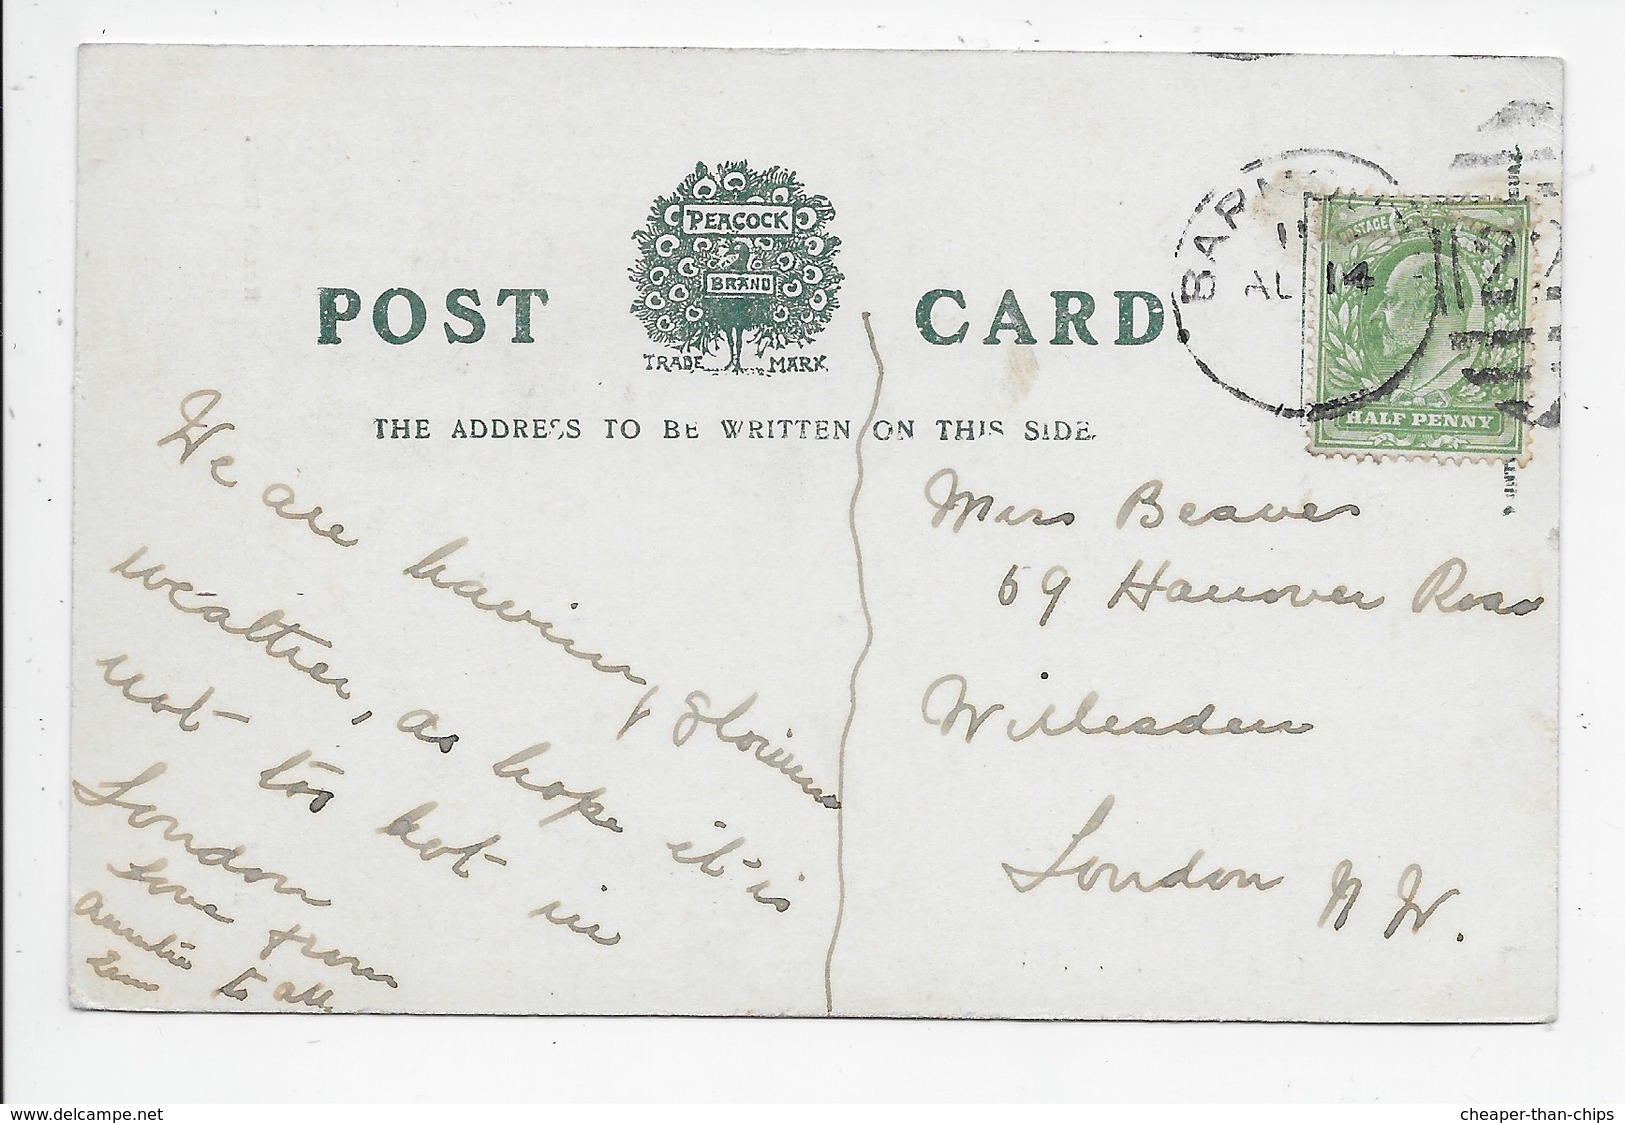 POST CARD
PEACOCK
BRAND
TRADE MARK
THE ADDRESS TO BE WRITTEN ON THIS SIDE.
AU 14
POSTAGE
HALF PENNY
We are having glorious
weather, as hope it is
not too hot in
London
Love from
Auntie
to all
Miss Beaver
59 Hanover Road
Willesden
London N W.
www.delcampe.net
cheaper-than-chips